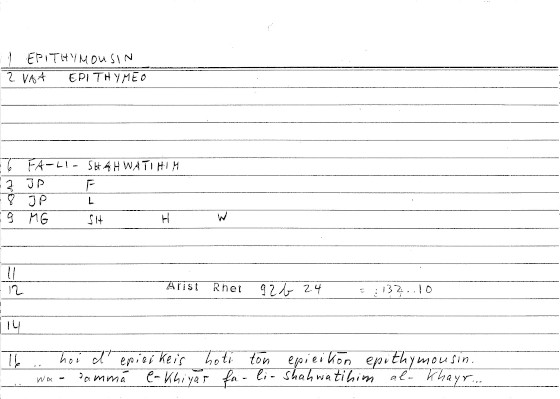 1 EPITHYMOUSIN
2 VAA EPITHYMEO
6 FA-LI- SHAHWATIHIM
7 JP F
8 JP L
9 MG SH H W
11
12 Arist Rhet 92b 24 = 132..10
14
16 .. hoi d' epieikeis hoti tōn epieikōn epithymousin.
.. wa- ʾammā l-khiyār fa- li- shahwatihim al- khayr...